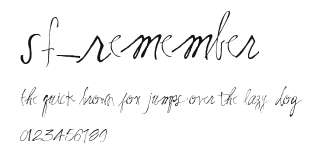 sf_remember
the quick brown fox jumps over the lazy dog
0123456789